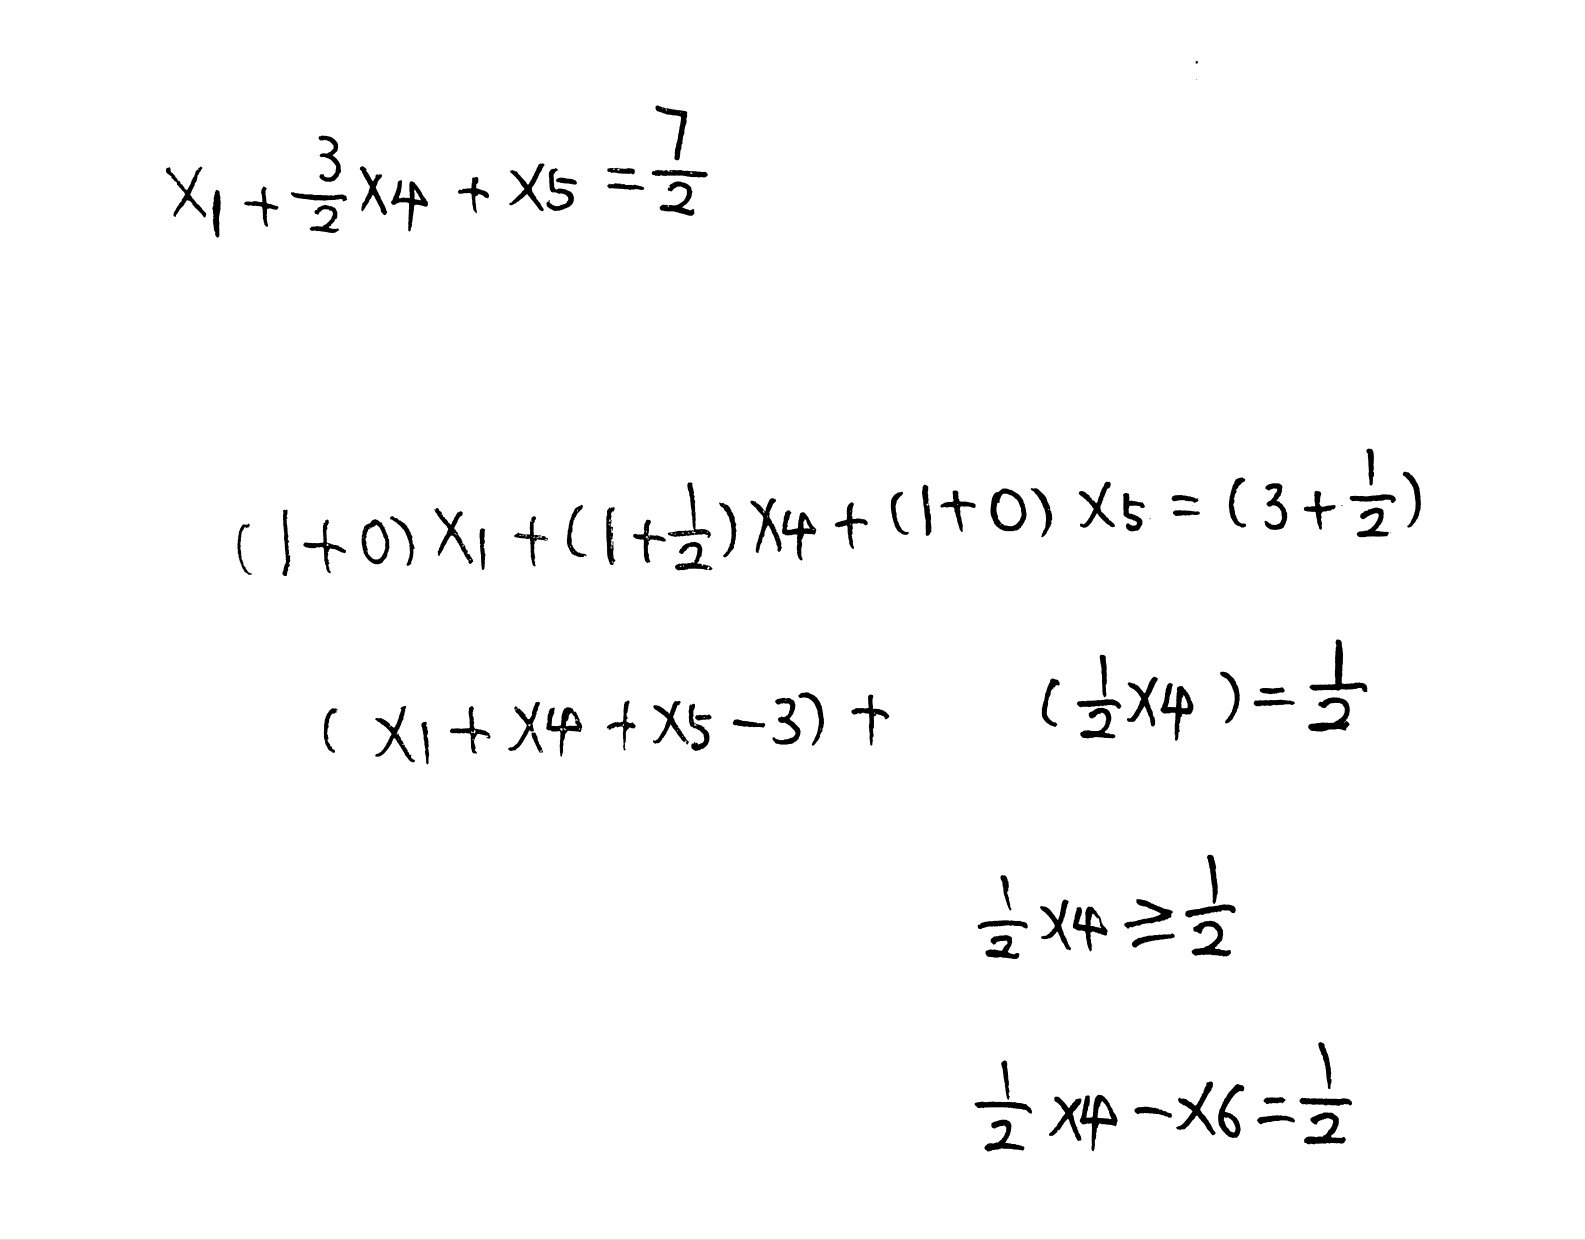 x1 + 3/2 x4 + x5 = 7/2
(1+0) x1 + (1+1/2) x4 + (1+0) x5 = (3+1/2)
(x1 + x4 + x5 - 3) + (1/2 x4) = 1/2
1/2 x4 ≥ 1/2
1/2 x4 - x6 = 1/2